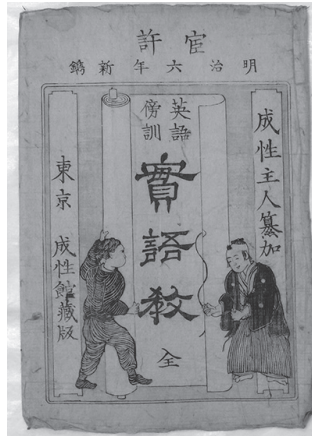 官許
明治六年新鐫
成性主人纂加
英語
傍訓
實語教
全
東京 成性館藏版